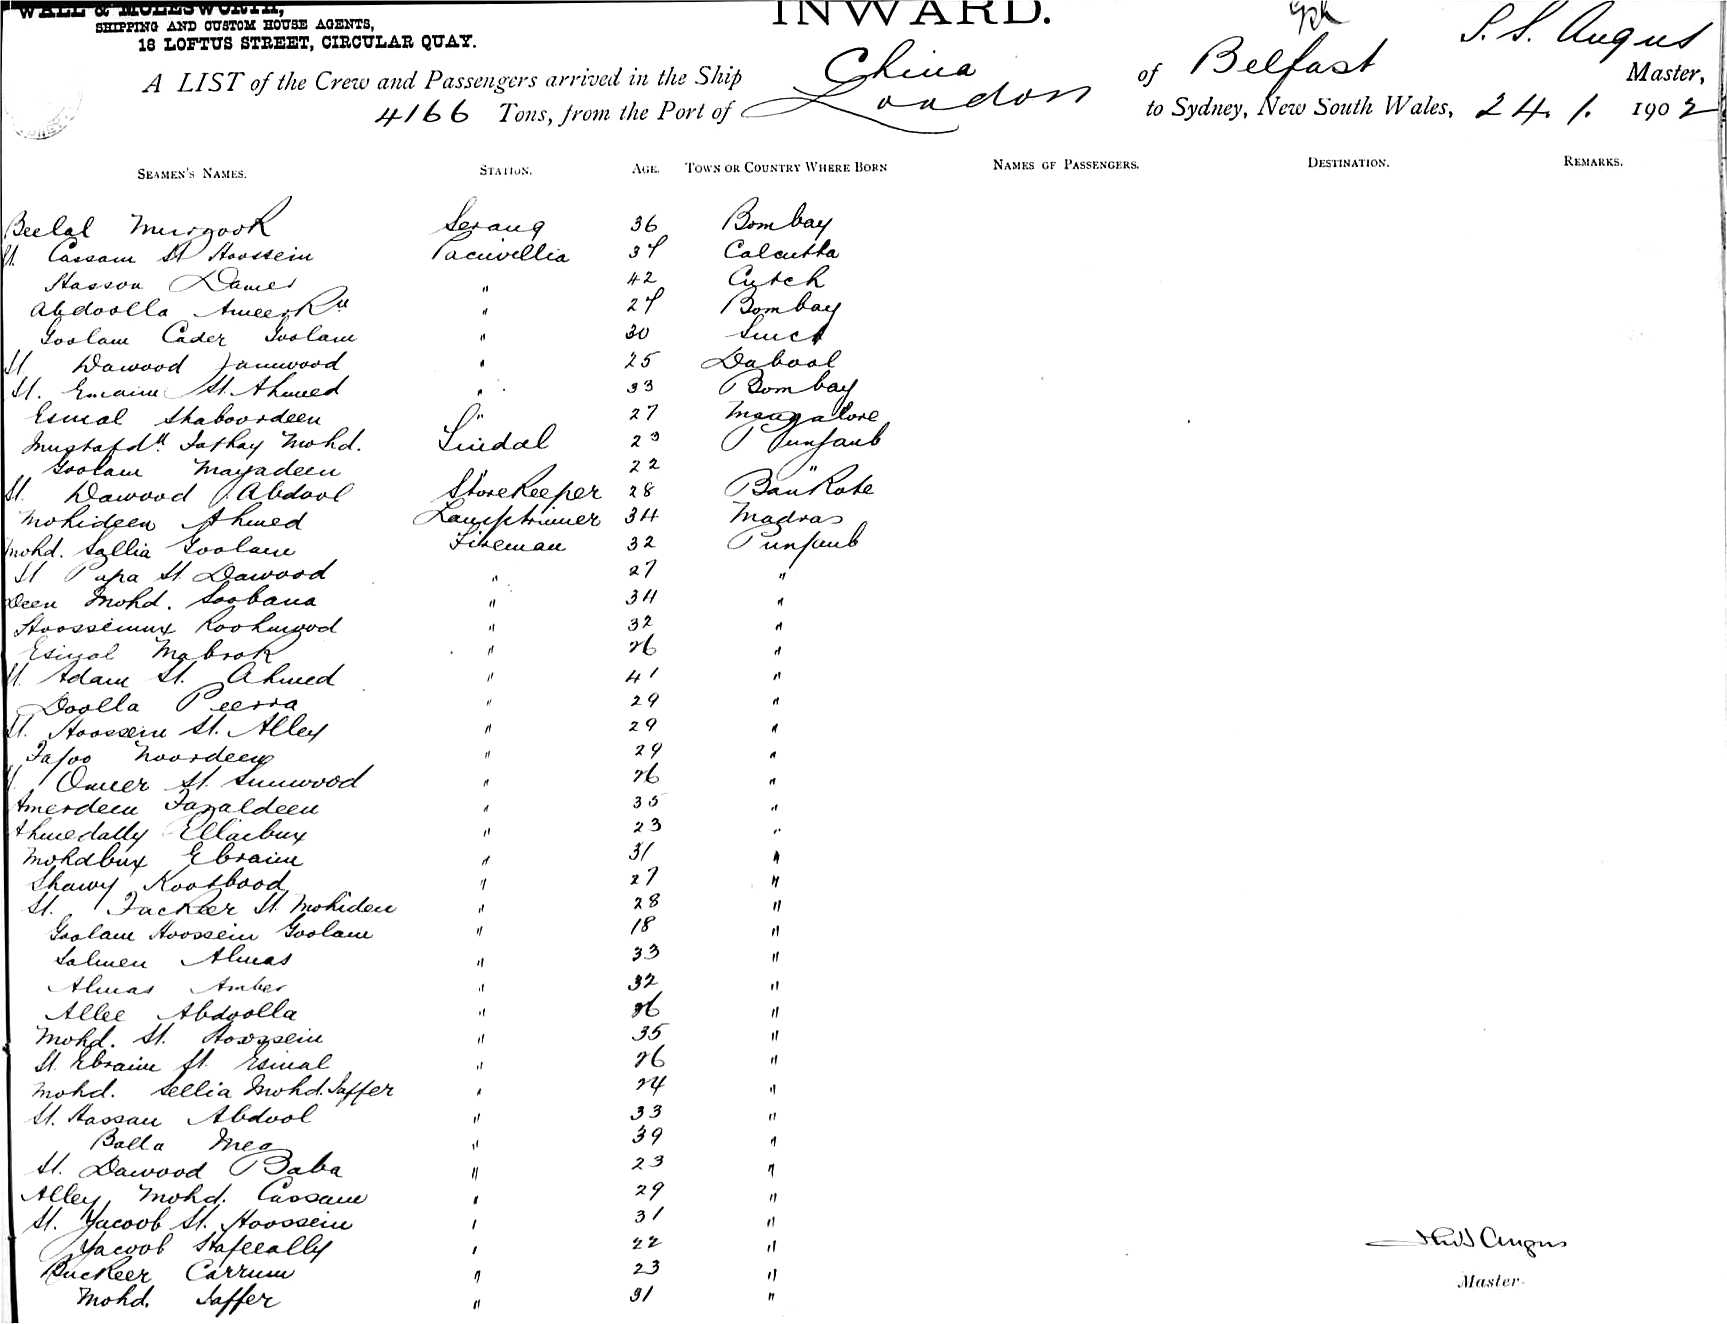 WALL & MOLESWORTH,
SHIPPING AND CUSTOM HOUSE AGENTS,
18 LOFTUS STREET, CIRCULAR QUAY.
INWARD.
A LIST of the Crew and Passengers arrived in the Ship China of Belfast S. S. Angus Master,
4166 Tons, from the Port of London to Sydney, New South Wales, 24. 1. 1902
SEAMEN'S NAMES. STATION. AGE. TOWN OR COUNTRY WHERE BORN NAMES OF PASSENGERS. DESTINATION. REMARKS.
Beelal Murzook Serang 36 Bombay
St. Cassam St Hoossein 37 Calcutta
Hasson " 42 Cutch
Abdoolla " 27 Bombay
Goolam Cader Goolam " 30
St Dawood " 25 Dabool
St. St. Ahmed " 33 Bombay
Esmal Shaboordeen " 27 Mangalore
Mohd. Tindal 23 Punjaub
Goolam Mayadeen " 22 "
St. Dawood Abdool Storekeeper 28 Bankote
Mohideen Ahmed Lamptrimer 34 Madras
Mohd. Sallia Goolam Fireman 32 Punjaub
St Papa St Dawood " 27 "
Deen Mohd. Soobana " 34 "
" 32 "
Esmal Mabrok " 26 "
St. Adam St. Ahmed " 41 "
Doolla Peerra " 29 "
St. Hoossein St. Alley " 29 "
Noordeen " 29 "
St Omer St. " 26 "
Amerdeen Fazaldeen " 35 "
Ahmedally Ellaibux " 23 "
Mohdbux Ebraim " 31 "
" 27 "
St. Fackeer St. Mohiden " 28 "
Goolam Hoossein Goolam " 18 "
Salmen Almas " 33 "
Almas Amber " 32 "
Allee Abdoolla " 26 "
Mohd. St. Hoossein " 35 "
St. Ebraim St. Esmal " 26 "
Mohd. Sellia Mohd. Jaffer " 24 "
St. Hassan Abdool " 33 "
Balla Mea " 39 "
St. Dawood Baba " 23 "
Alley Mohd. Cassam " 29 "
St. Yacoob St. Hoossein " 31 "
Yacoob " 22 "
Buckeer Carrum " 23 "
Mohd. Jaffer " 31 "
Angus
Master.